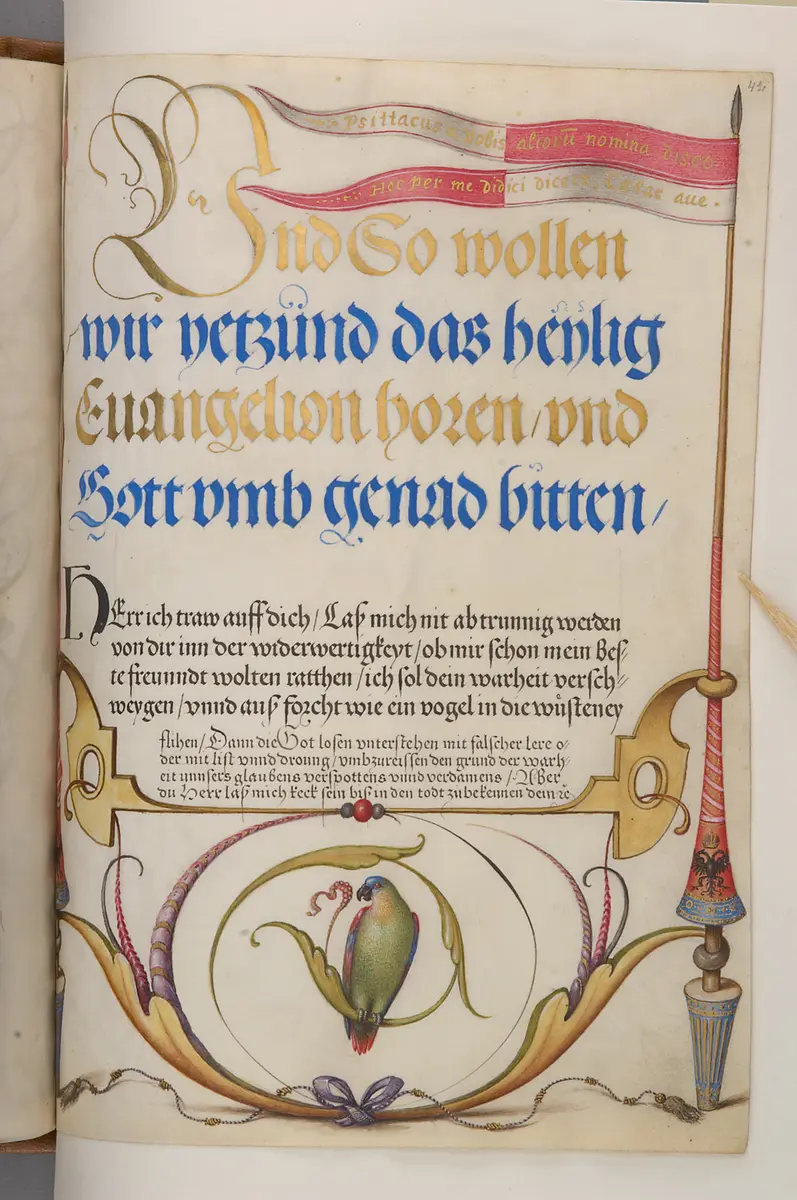 Psittacus a vobis aliorū nomina discā.
Hoc per me didici dicere, Cæsar aue.
Vnd So wollen
wir yetzünd das heÿlig
Euangelion horen / vnd
Gott vmb genad bitten /
HErr ich traw auff dich / Laß mich nit abtrunnig werden
von dir inn der widerwertigkeyt / ob mir schon mein Bes-
te freunndt wolten ratthen / ich sol dein warheit versch-
weygen / vnnd auß forcht wie ein vogel in die wůsteney
flihen / Dann die Got losen vnterstehen mit falscher lere o-
der mit list vnnd droung / vmbzureissen den grund der warh-
eit vnnsers glaubens verspottens vnnd verdamens /. Aber
du Herr laß mich keck sein biß in den todt zubekennen dein
42